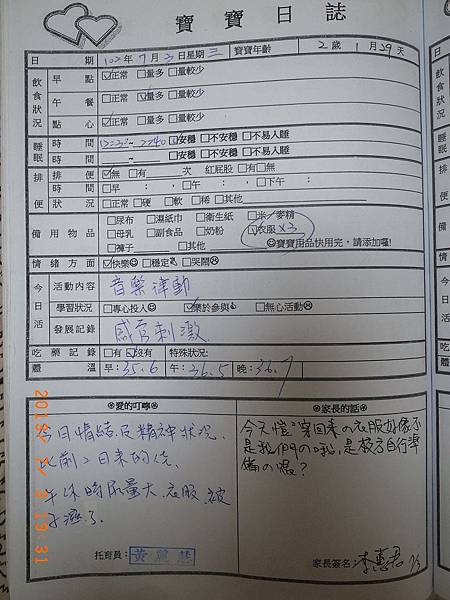 寶寶日誌
日期 102年7月3日星期三 寶寶年齡 2歲1月29天
飲食狀況
早點 ☑正常 □量多 □量較少
午餐 □正常 ☑量多 □量較少
點心 ☑正常 □量多 □量較少
睡眠
時間 ~ 2:40 ☑安穩 □不安穩 □不易入睡
時間 ~ □安穩 □不安穩 □不易入睡
排便
排便 ☑無 □有 次 紅屁股 □有 □無
時間 □早: , □午: , □下午:
狀況 □正常 □硬 □軟 □稀 □其他
備用物品
□尿布 □濕紙巾 □衛生紙 □米/麥精
□母乳 □副食品 □奶粉 ☑衣服 x3
□褲子 □其他 ☺寶寶用品快用完,請添加囉!
情緒方面 ☑快樂☺ □穩定 □哭鬧☹
今日活動
活動內容 音樂律動
學習狀況 □專心投入☺ ☑樂於參與 □無心活動☹
發展記錄 感官刺激
吃藥記錄 □有 ☑沒有 特殊狀況:
體溫 早:35.6 午:36.5 晚:36.7
愛的叮嚀
今日情緒及精神狀況,
比前2日來的佳.
午休時尿量大,衣服、被
子濕了.
托育員: 黃麗慧
家長的話
今天愷愷穿回來の衣服好像不
是我們の哦,是校方自行準
備の嗎?
家長簽名: 李惠君 7/3
2013/ 7/ 3 19:31